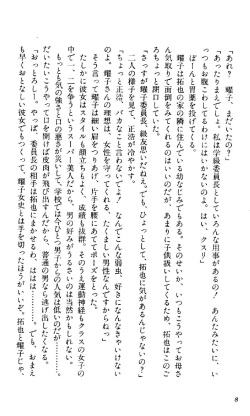 「あれ?　曜子、まだいたの?」
「あったりまえでしょ。私は学級委員としていろんな用事があるの!　あんたみたいに、い
つもお腹こわしてるわけにはいかないのよ。はい、クスリ」
ぽーんと胃薬を投げてよこす。
曜子は拓也の家の隣に住んでいる幼なじみでもある。そのせいか、いつもこうやってお母さ
ん気取りで拓也の面倒をみてくれるのはいいのだが、あまりに子供扱いしてくるため、拓也はほ
とほと閉口していた。
「さっすが曜子委員長。級友思いだねぇ。でも、ひょっとして、拓也に気があるんじゃないの?」
二人の様子を見て、正浩が冷やかす。
「ちょっと正浩、バカなこと言わないでよ!　なんでこんな弱虫、好きになんなきゃいけない
のよ。曜子さんの理想は、女性を守ってくれる、たくましい男性なんですからね」
そう言って曜子は細い眉をつりあげ、片手を腰にあててポーズをとった。
たしかに彼女はスタイルも顔立ちもいい。成績も抜群。そのうえ運動神経もクラスの女子の
中で一、二を争うというスーパー美人だから、男の好みがうるさいのは当然かもしれない。
もっとも気の強さと口の悪さが災いして、学校では今ひとつ男子からの人気は低いのだが……。
だいたいこうやって口を開けば皮肉が飛び出すんだから、普通の男なら逃げ出したくなる。
「おっとろしー。やっぱ、委員長の相手は拓也にまかせるわ。ははは……。でも、おまえ
も早くおとなしい彼女でもつくって、曜子女史とは手を切ったほうがいいぞ。拓也と曜子じゃ、
8